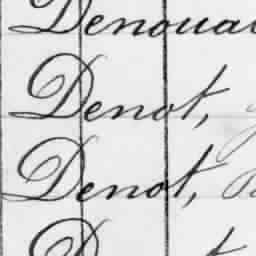 Denoua
Denot,
Denot,